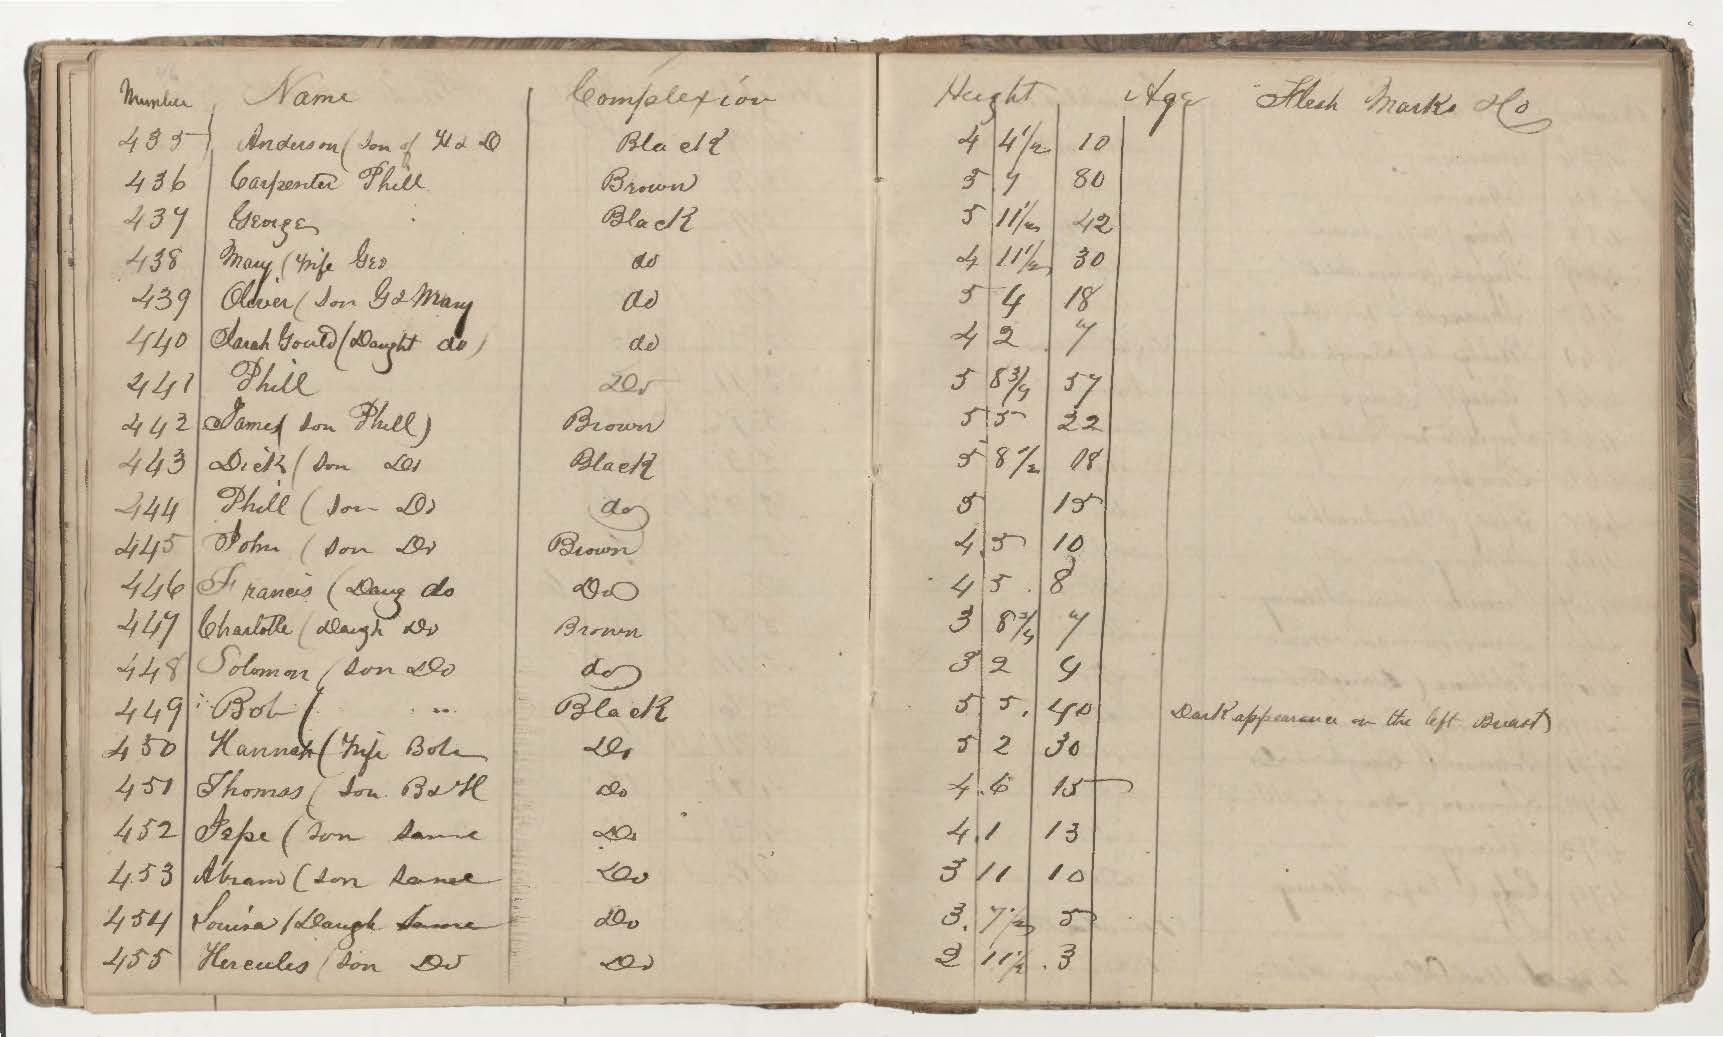 Number Name Complexion Height Age Flesh Marks &c
435 Anderson (son of H & D Black 4 4 1/2 10
436 Carpenter Phill Brown 5 7 80
437 George Black 5 11 1/2 42
438 Mary (Wife Geo do 4 11 1/2 30
439 Oliver (son G & Mary do 5 4 18
440 Sarah Gould (Daught do) do 4 2 7
441 Phill Do 5 8 3/4 57
442 James (son Phill) Brown 5 5 22
443 Dick (son Do Black 5 8 1/2 18
444 Phill (son Do do 5 15
445 John (son Do Brown 4 5 10
446 Francis (Daug do Do 4 5 8
447 Charlotte (Daugh Do Brown 3 8 3/4 7
448 Solomon (son Do do 3 2 4
449 Bob ( " Black 5 5 40 Dark appearance on the left Breast
450 Hannah (Wife Bob Do 5 2 30
451 Thomas (son B & H Do 4 6 15
452 (son same Do 4 1 13
453 Abram (son same Do 3 11 10
454 Louisa (Daugh same Do 3 7 1/2 5
455 Hercules (son Do Do 2 11 1/2 3